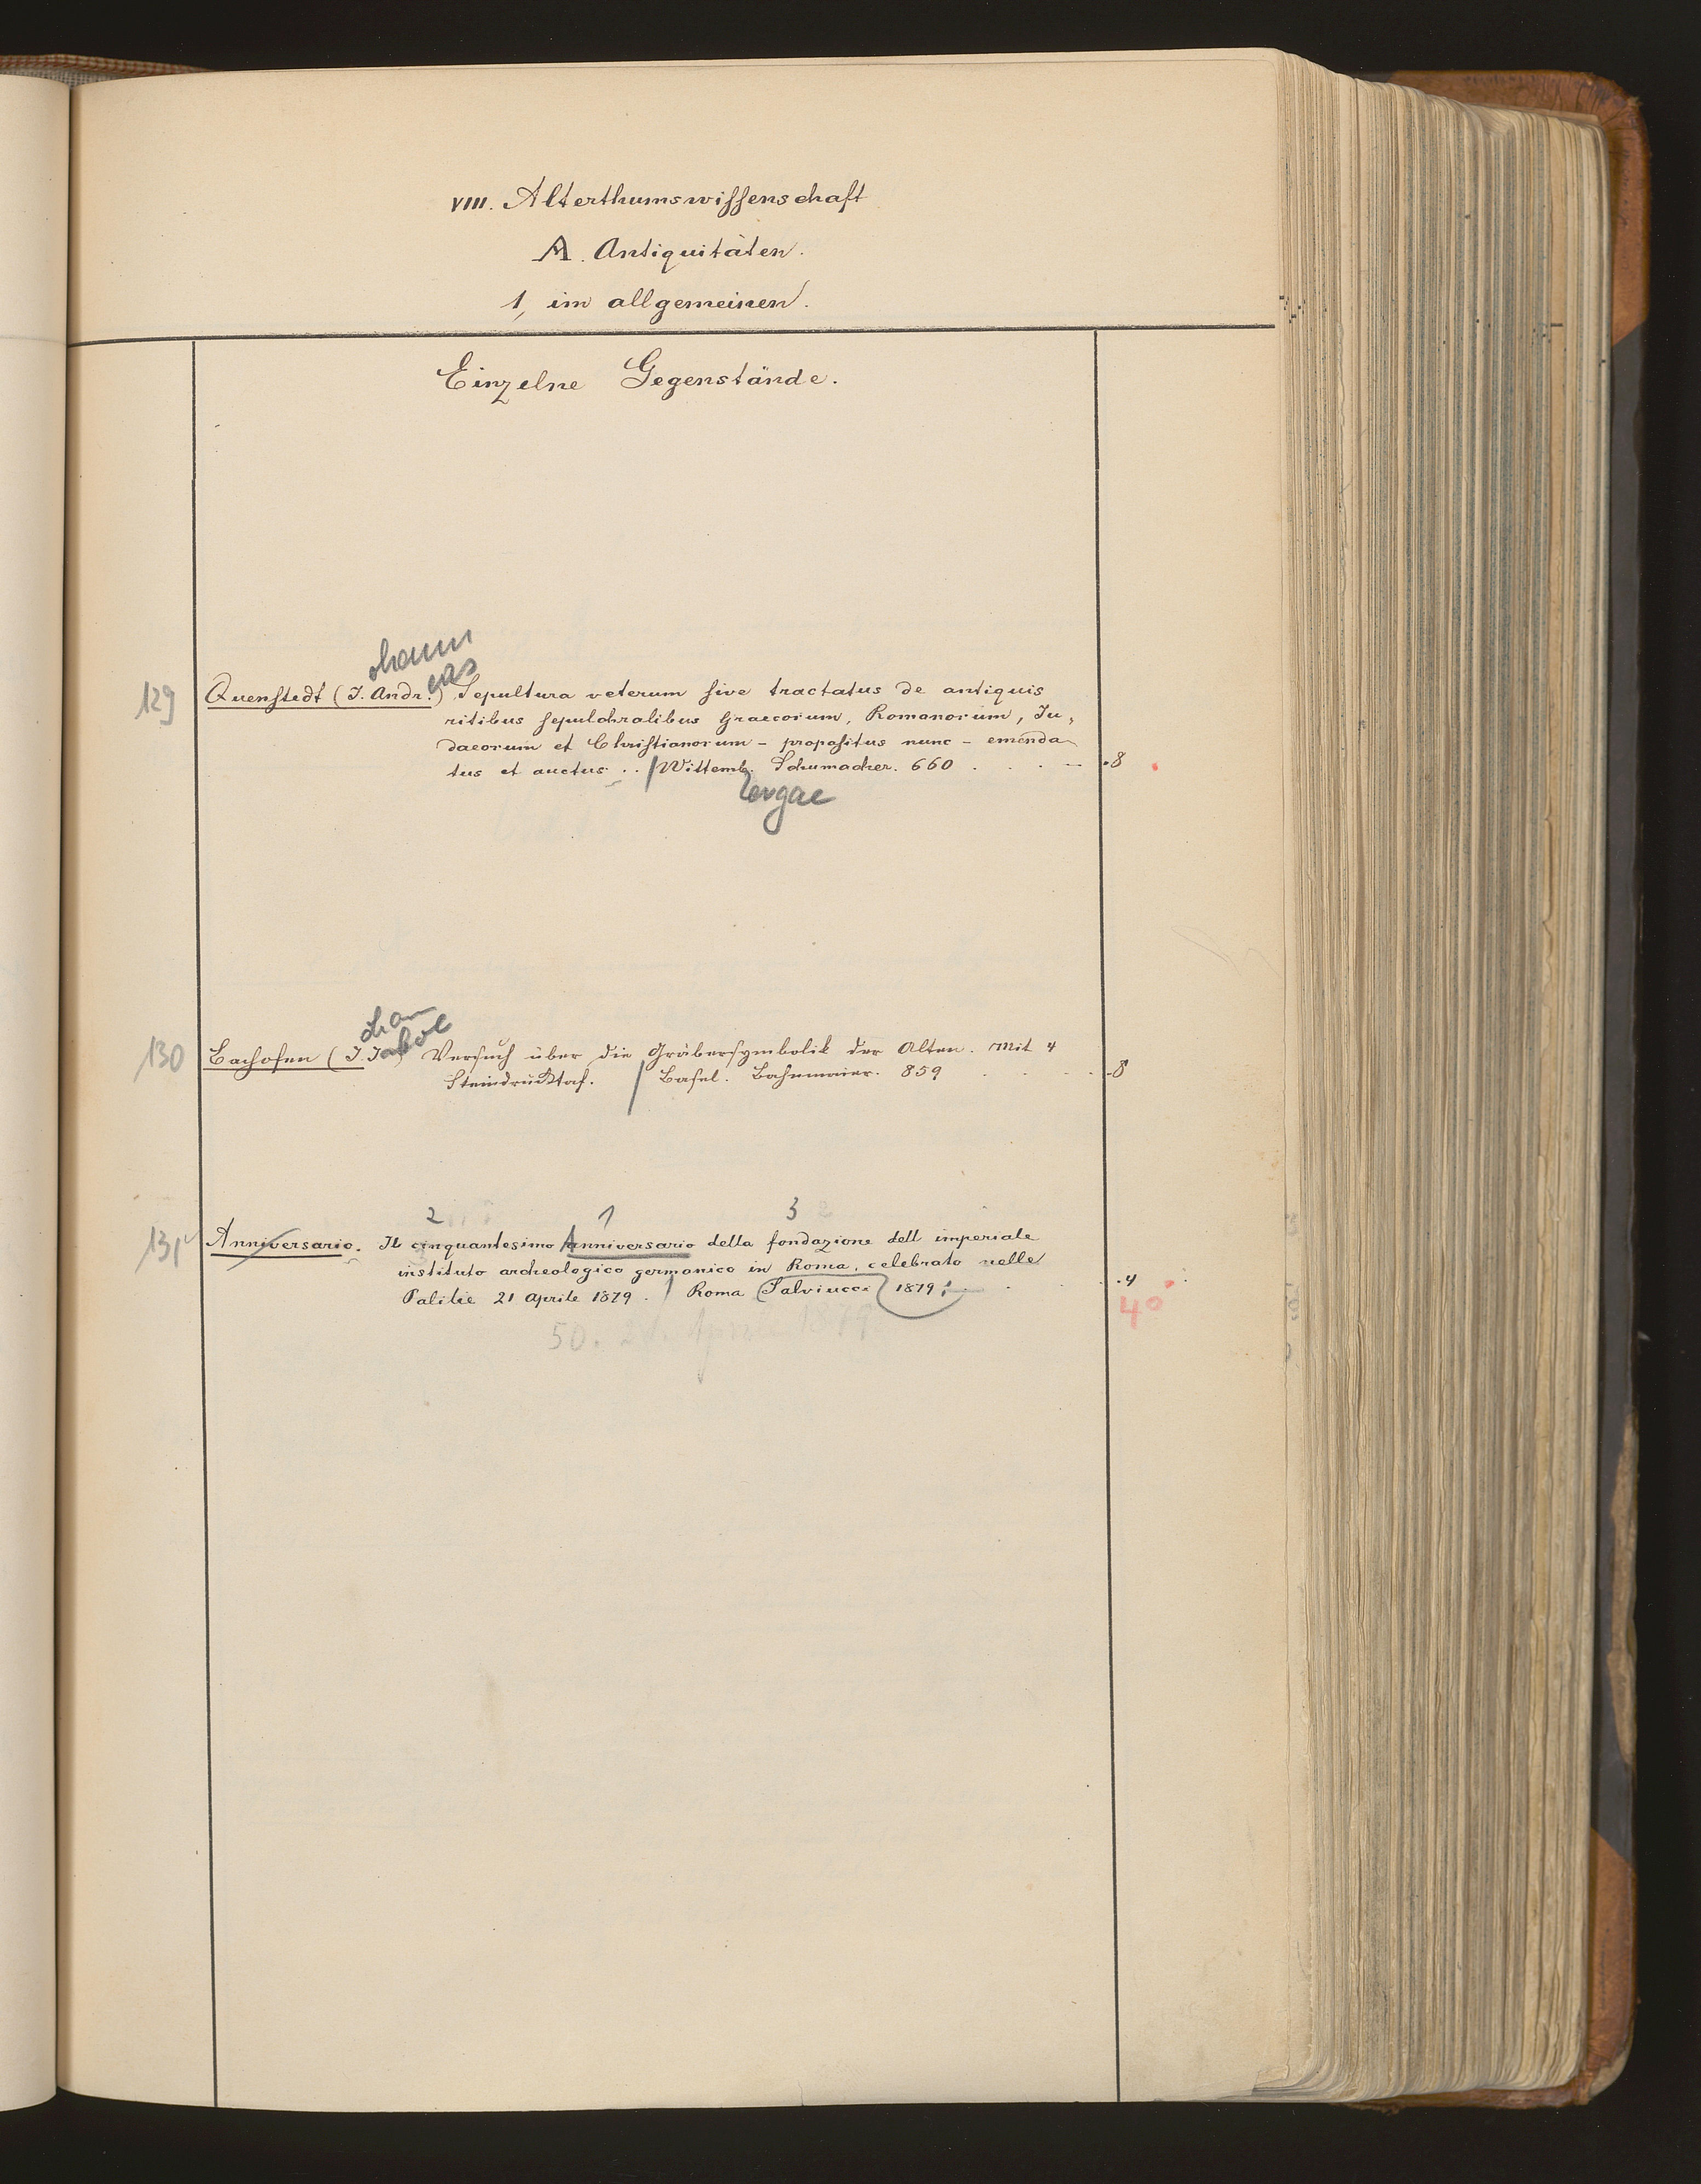 VIII. Alterthumswissenschaft
A. Antiquitäten.
1, im allgemeinen.
Einzelne Gegenstände.
ohann
eas
129 Quenstedt (J. Andr.) Sepultura veterum sive tractatus de antiquis
ritibus sepulchralibus Graecorum, Romanorum, Ju-
daeorum et Christianorum - propositus nunc - emenda-
tus et auctus . . / Wittemb. Schumacher. 660 . . . - .8
ergae
ohann
130 Bachofen (J. Jakob) Versuch über die Gräbersymbolik der Alten. Mit 4
Steindrucktaf. / Basel. Bahnmaier. 859 . . . . .8
2 1 3
131 Anniversario. Il cinquantesimo Anniversario della fondazione dell imperiale
instituto archeologico germanico in Roma, celebrato nelle
Palilie 21 Aprile 1879. / Roma (Salviucci) 1879; . . .4
4°
50. 21. Aprile 1879